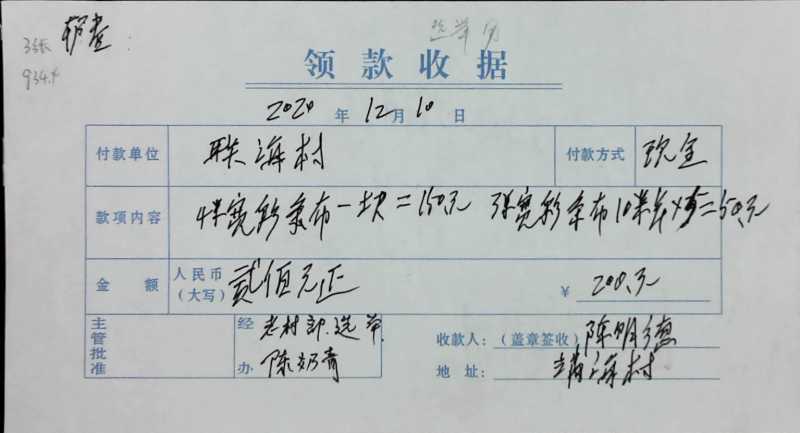 3张
934.4
选举用
领款收据
2020年12月10日
付款单位 联海村 付款方式 现金
款项内容 4米宽彩条布一块=150元 3米宽彩条布10米长×5=50元
金额 人民币(大写) 贰佰元正 ¥ 200元
主管批准 经办 老村部选举 陈奶青
收款人:(盖章签收) 陈明德
地址: 靖海村